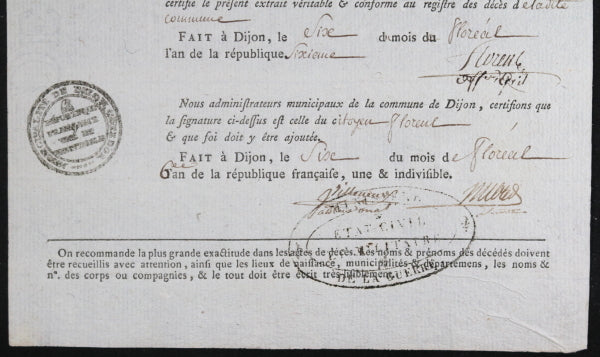 certifie le présent extrait véritable & conforme au registre des décès de ladite
commune
FAIT à Dijon, le Six du mois du floréal
l'an de la république Sixieme
Florent
Nous administrateurs municipaux de la commune de Dijon, certifions que
la signature ci-dessus est celle du citoyen Florent
& que foi doit y être ajoutée.
FAIT à Dijon, le Six du mois de floréal
6ee l'an de la république française, une & indivisible.
ÉTAT CIVIL
MILITAIRE
DE LA GUERRE
On recommande la plus grande exactitude dans les actes de décès. Les noms & prénoms des décédés doivent
être recueillis avec attention, ainsi que les lieux de naissance, municipalités & départemens, les noms &
n°. des corps ou compagnies, & le tout doit être écrit très-lisiblement.